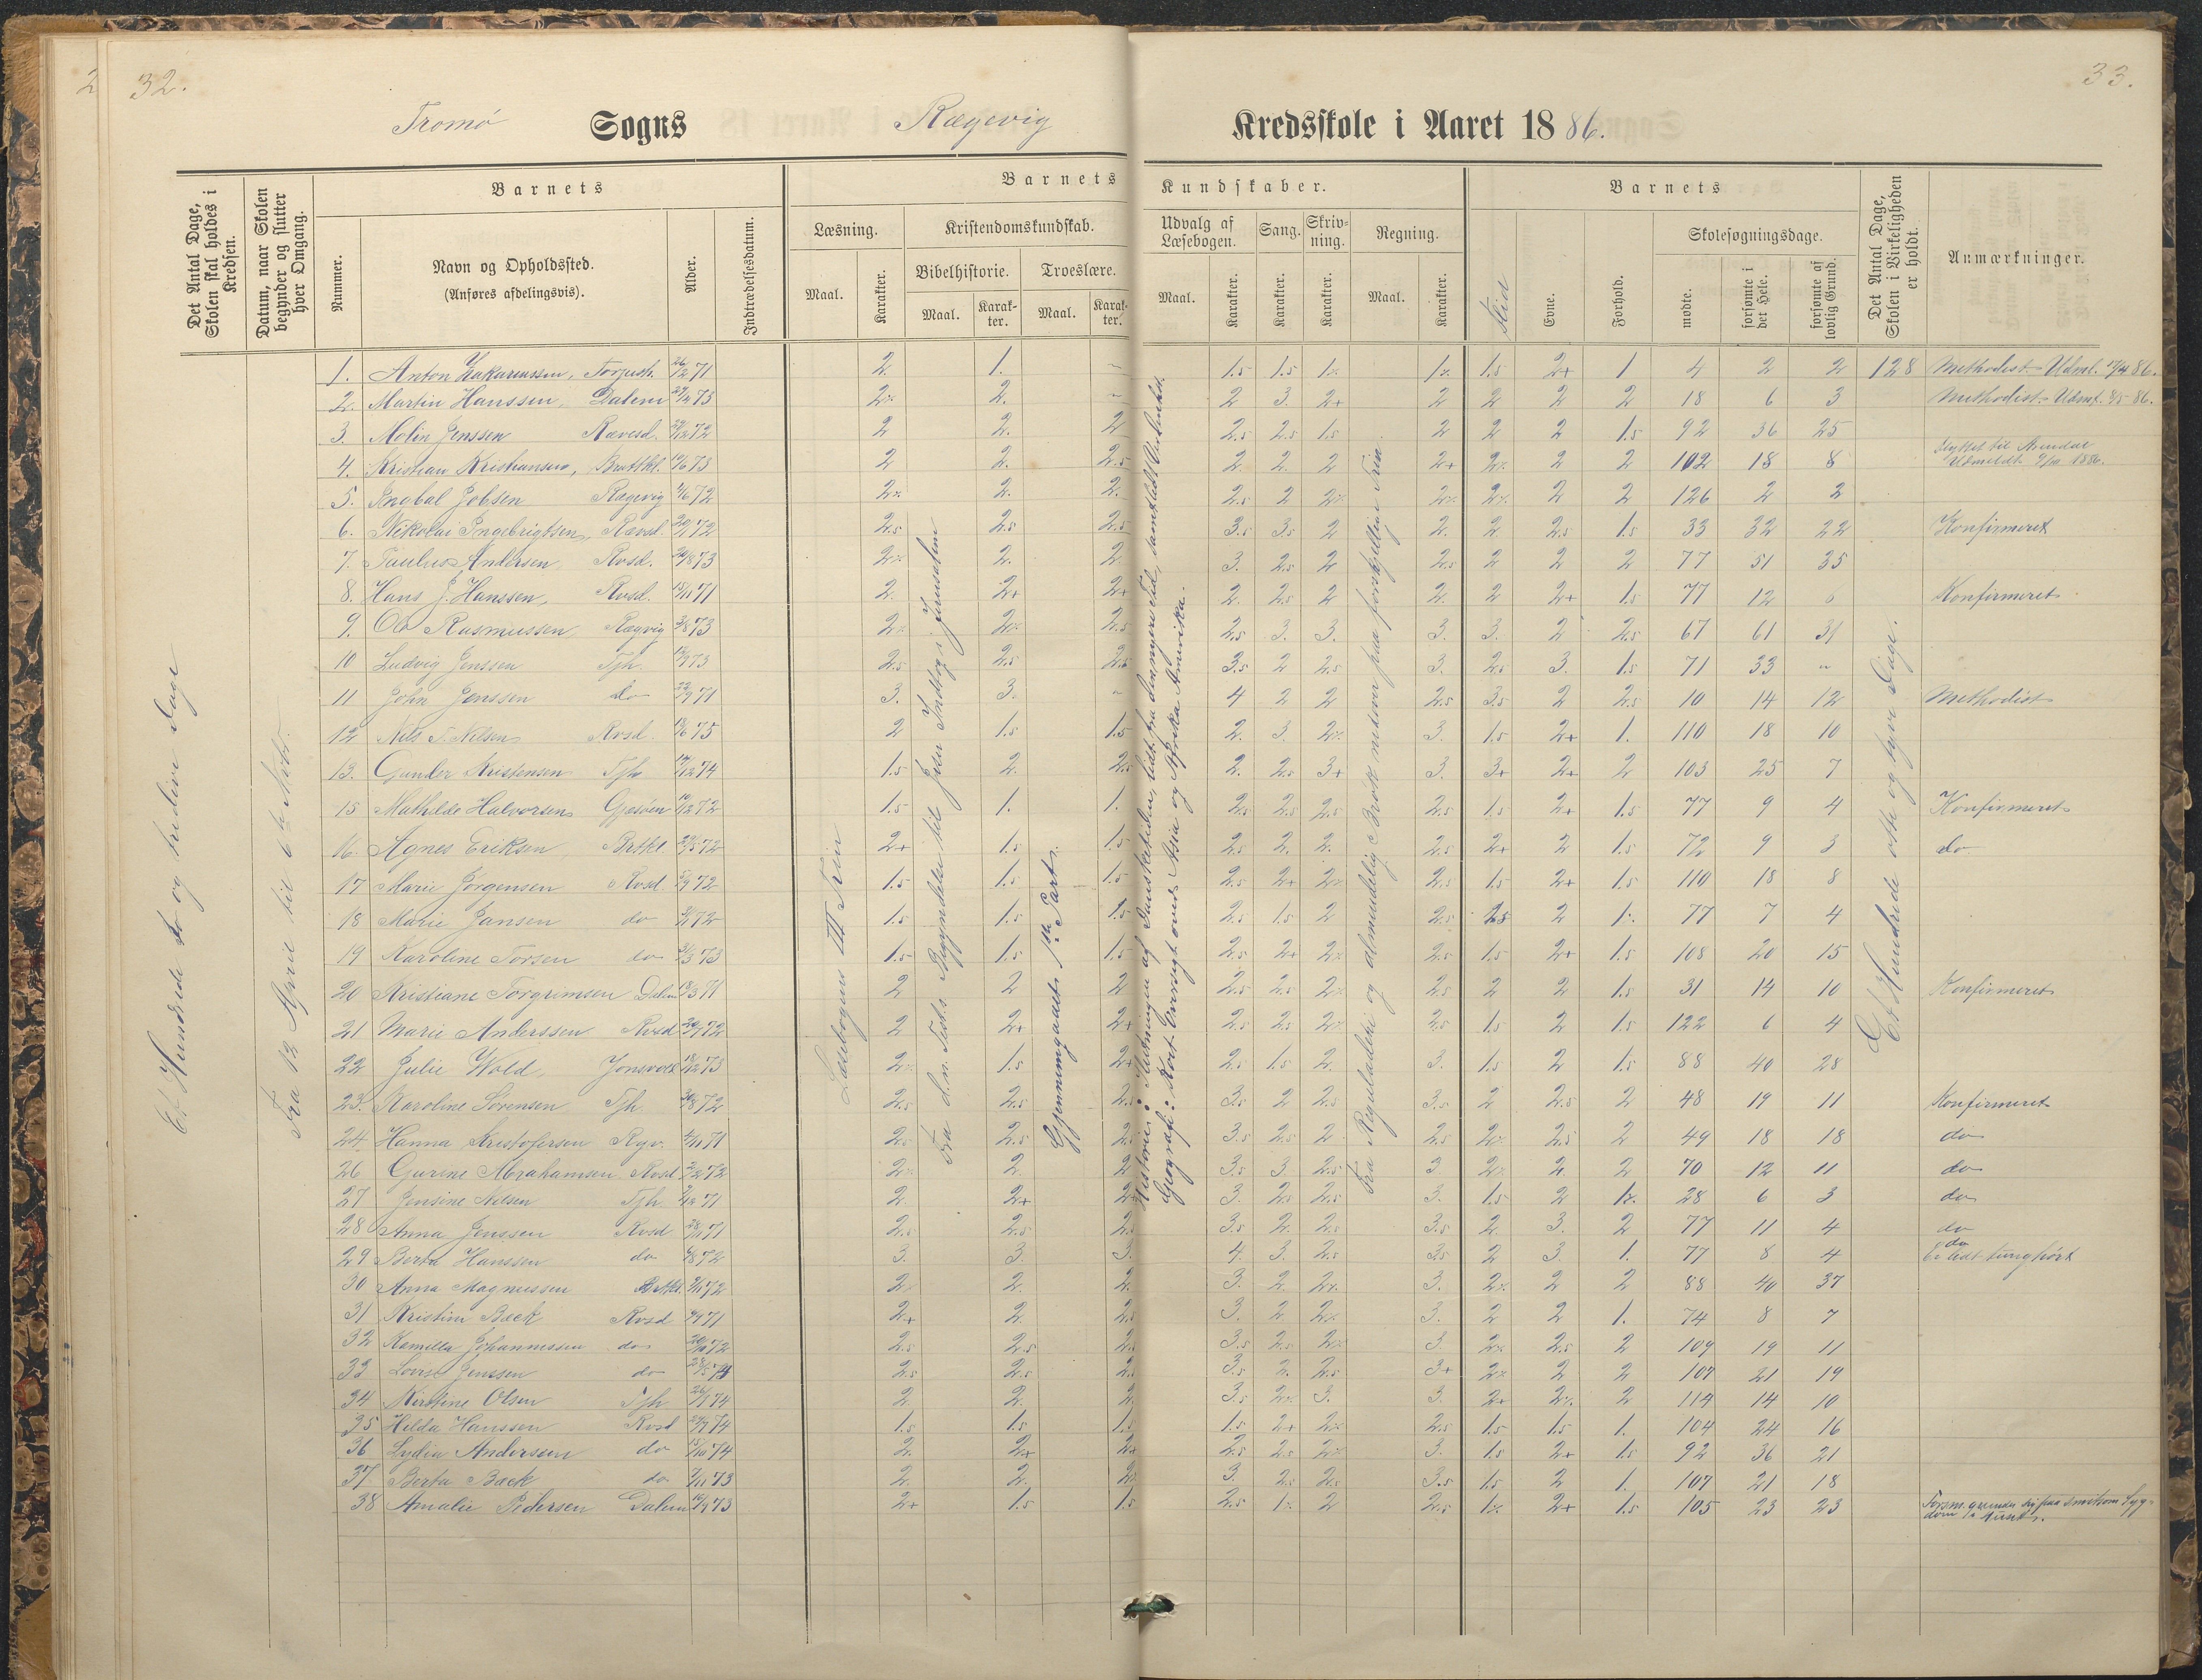 32.
33.
Tromø Sogns Rægevig Kredsskole i Aaret 1886.
Det Antal Dage, Skolen skal holdes i Kredsen.
Datum, naar Skolen begynder og slutter hver Omgang.
Barnets
Nummer.
Navn og Opholdssted.
(Anføres afdelingsvis).
Alder.
Indtrædelsesdatum.
Barnets Kundskaber.
Læsning.
Kristendomskundskab.
Bibelhistorie.
Troeslære.
Udvalg af Læsebogen.
Sang.
Skrivning.
Regning.
Maal. Karakter. Maal. Karakter. Maal. Karakter.
Maal. Karakter. Karakter. Karakter. Maal. Karakter.
Barnets
Flid
Evne.
Forhold.
Skolesøgningsdage.
mødte.
forsømte i det Hele.
forsømte af lovlig Grund.
Det Antal Dage, Skolen i Virkeligheden er holdt.
Anmærkninger.
Et Hundrede to og tredive Dage
Fra 12 April til
Læsebogens III Trin
Fra d. n. Test.s Begyndelse til Jesu Indtog i Jerusalem
Gjennemgaaet 1ste Part.
Historie: Slutningen af Dansketiden, lidt fra den nyere Tid,
Geografi: Kort Oversigt over Asia og Afrika Amerika.
Fra Reguladetri og almindelig Brøk
Et Hundrede otte og tyve Dage.
1. Anton Zakariassen, 26/2 71 2. 1. 1.5 1.5 1. 1.5 2+ 1 4 2 2 128 Methodist Udml. 86.
2. Martin Hanssen, Dalene 75 2. 2 3. 2+ 2 2 2 2 18 6 3 Methodist Udml. 86.
3. Molin Jenssen Rævesd. 72 2 2. 2 2.5 2.5 1.5 2 2 2 1.5 92 36 25
4. Kristian Kristiansen, Brattkl. 73 2 2. 2.5 2. 2. 2 2+ 2 2 102 18 8 flyttet til Arendal Udmeldt 1886.
5. Ingbal Jobsen Rægevig 72 2. 2. 2.5 2 2 2 126 2 2
6. Nikolai Ingebrigtsen, Rævsd. 72 2.5 2.5 2.5 3.5 3.5 2 2. 2. 2.5 1.5 33 32 22 Konfirmeret
7. Paulus Andersen Rvsd. 73 2. 2. 3. 2.5 2 2.5 2 2 2 77 51 35
8. Hans J. Hanssen, Rvsd. 15/11 71 2. 2+ 2+ 2. 2.5 2 2. 2 2+ 1.5 77 12 6 Konfirmeret
9. Ole Rasmussen, Rægvig 73 2.5 2.5 3. 3. 3. 3. 2 2.5 67 61 31
10 Ludvig Jenssen Tjh. 73 2.5 2.5 2.5 3.5 2 2.5 3. 2.5 3. 1.5 71 33 "
11 John Jenssen do 71 3. 3. " 4 2 2 2.5 3.5 2 2.5 10 14 12 Methodist
12 Nils T. Nilsen Rvsd. 75 2 1.5 1.5 2. 3. 3. 1.5 2+ 1. 110 18 10
13. Gunder Kristensen Tjh 74 1.5 2. 2.5 2. 2.5 3+ 3. 3+ 2+ 2 103 25 7
15 Mathilde Halvorsen Gjesøen 72 1.5 1. 1. 2.5 2.5 2.5 2.5 1.5 2+ 1.5 77 9 4 Konfirmeret
16. Agnes Eriksen, Brtkl. 72 2+ 1.5 1.5 2.5 2. 2. 2.5 2+ 2 1.5 72 9 3 do
17 Marie Jørgensen Rvsd. 72 1.5 1.5 1.5 2.5 2+ 2.5 1.5 2+ 1.5 110 18 8
18 Marie Jansen do 72 1.5 1.5 1.5 2.5 1.5 2 2.5 1.5 2 77 7 4
19 Karoline Torsen do 73 1.5 1.5 1.5 2.5 2+ 2.5 1.5 2+ 1.5 108 20 15
20 Kristiane Torgrimsen Dalen 71 2 2 2 2.5 2.5 2.5 2 2 1.5 31 14 10 Konfirmeret
21 Marie Anderssen Rvsd 72 2 2+ 2+ 2.5 2.5 2.5 1.5 2 1.5 122 6 4
22 Julie Wold, 73 1.5 2+ 2.5 1.5 2. 3. 1.5 2 1.5 88 40 28
23. Karoline Sørensen Tjh 72 2.5 2.5 2.5 3.5 2 2.5 3.5 2 2.5 2 48 19 11 Konfirmeret
24. Hanna Kristofersen Rgv. 71 2.5 2.5 3.5 2.5 2 2.5 2.5 2 49 18 18 do
26 Gurine Abrahamsen Rvsd 72 2. 2 3.5 3. 2.5 3. 2. 2 70 12 11 do
27 Jensine Nilsen Tjh. 71 2. 2+ 3. 2.5 2.5 3. 1.5 2 28 6 3 do
28 Anna Jenssen Rvsd 71 2.5 2.5 2.5 3.5 2. 2.5 3.5 2. 3. 2 77 11 4 do
29 Berta Hanssen do 72 3. 3. 3. 4. 3. 2.5 3.5 2 3 1. 77 8 4 do Er lidt tunghørt
30 Anna Magnussen 72 2. 2. 3. 2. 3. 2 2 88 40 37
31 Kristine Bæck Rvsd 71 2+ 2. 2.5 3. 2. 3. 2 2 1. 74 8 7
32 Kamilla Johannessen do 72 2.5 2.5 2.5 3.5 2.5 3. 2.5 2 109 19 11
33 Lovise Jenssen do 2.5 2.5 2.5 3.5 2. 2.5 3+ 2 2 107 21 19
34 Kirstine Olsen Tjh 74 2 2. 2. 3.5 3. 3. 2+ 2 114 14 10
35 Hilda Hanssen Rvsd 74 1.5 1.5 1.5 1.5 2+ 2.5 1.5 1.5 1. 104 24 16
36 Lydia Anderssen do 15/10 74 2. 2+ 2+ 2.5 2.5 3. 1.5 2+ 1.5 92 36 21
37. Berta Bæck do 73 2. 2. 3. 2.5 2.5 3.5 1.5 2 1. 107 21 18
38 Amalie Pedersen Dalen 73 2+ 1.5 1.5 2.5 2 2.5 2+ 1.5 105 23 23 Forsm. grunder sig paa smitsom Sygdom i Huset.